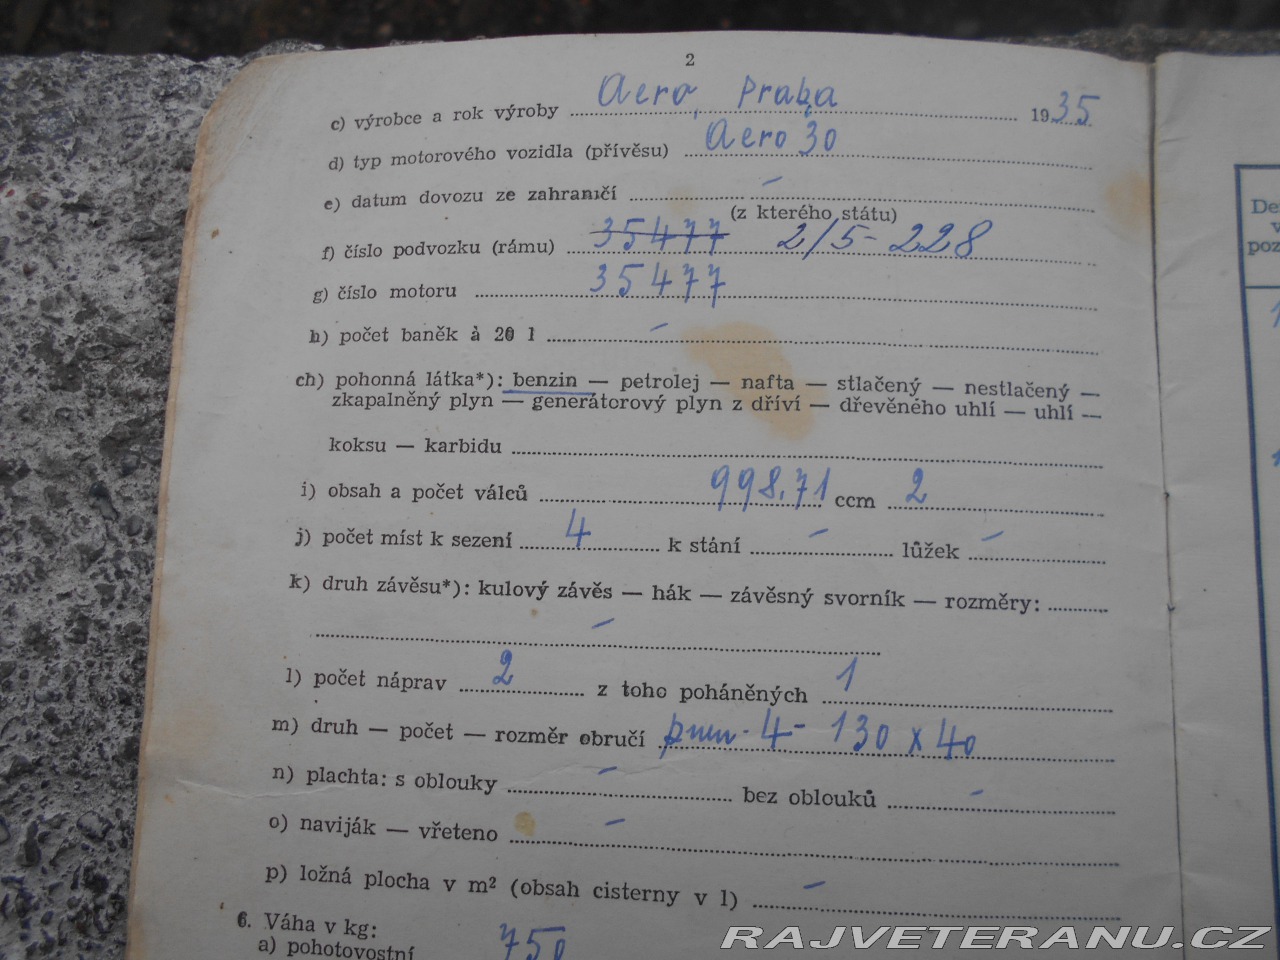 2
c) výrobce a rok výroby Aero, Praha 1935
d) typ motorového vozidla (přívěsu) Aero 30
e) datum dovozu ze zahraničí –
(z kterého státu)
f) číslo podvozku (rámu) 35477 2/5-228
g) číslo motoru 35477
h) počet baněk à 20 l –
ch) pohonná látka*): benzin — petrolej — nafta — stlačený — nestlačený —
zkapalněný plyn — generátorový plyn z dříví — dřevěného uhlí — uhlí —
koksu — karbidu
i) obsah a počet válců 998,71 ccm 2
j) počet míst k sezení 4 k stání – lůžek –
k) druh závěsu*): kulový závěs — hák — závěsný svorník — rozměry:
–
l) počet náprav 2 z toho poháněných 1
m) druh — počet — rozměr obručí pneu - 4 - 130 x 40
n) plachta: s oblouky – bez oblouků –
o) naviják — vřeteno –
p) ložná plocha v m² (obsah cisterny v l) –
6. Váha v kg:
a) pohotovostní 750
De
v
poz
RAJVETERANU.CZ